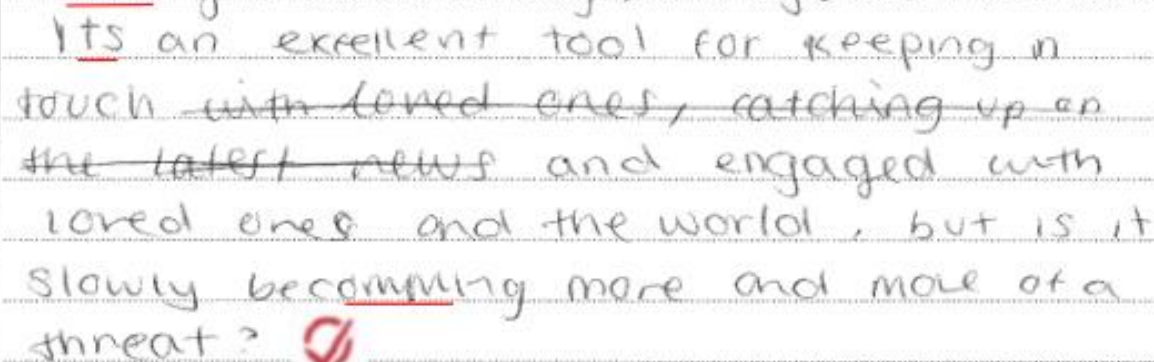 Its an excellent tool for keeping in
touch with loved ones, catching up on
the latest news and engaged with
loved ones and the world, but is it
slowly becomming more and more of a
threat?